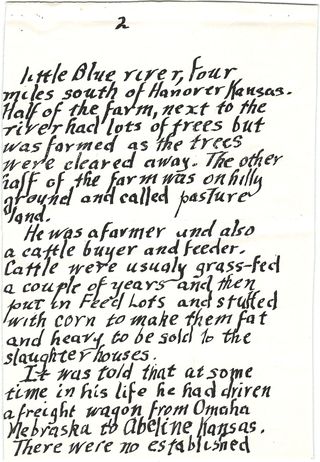 2
little Blue river, four
miles south of Hanover Kansas.
Half of the farm, next to the
river had lots of trees but
was farmed as the trees
were cleared away. The other
half of the farm was on hilly
ground and called pasture
land.
He was a farmer and also
a cattle buyer and feeder.
Cattle were usualy grass-fed
a couple of years and then
put in Feed Lots and stuffed
with corn to make them fat
and heavy to be sold to the
slaughter houses.
It was told that at some
time in his life he had driven
a freight wagon from Omaha
Nebraska to Abeline Kansas.
There were no established